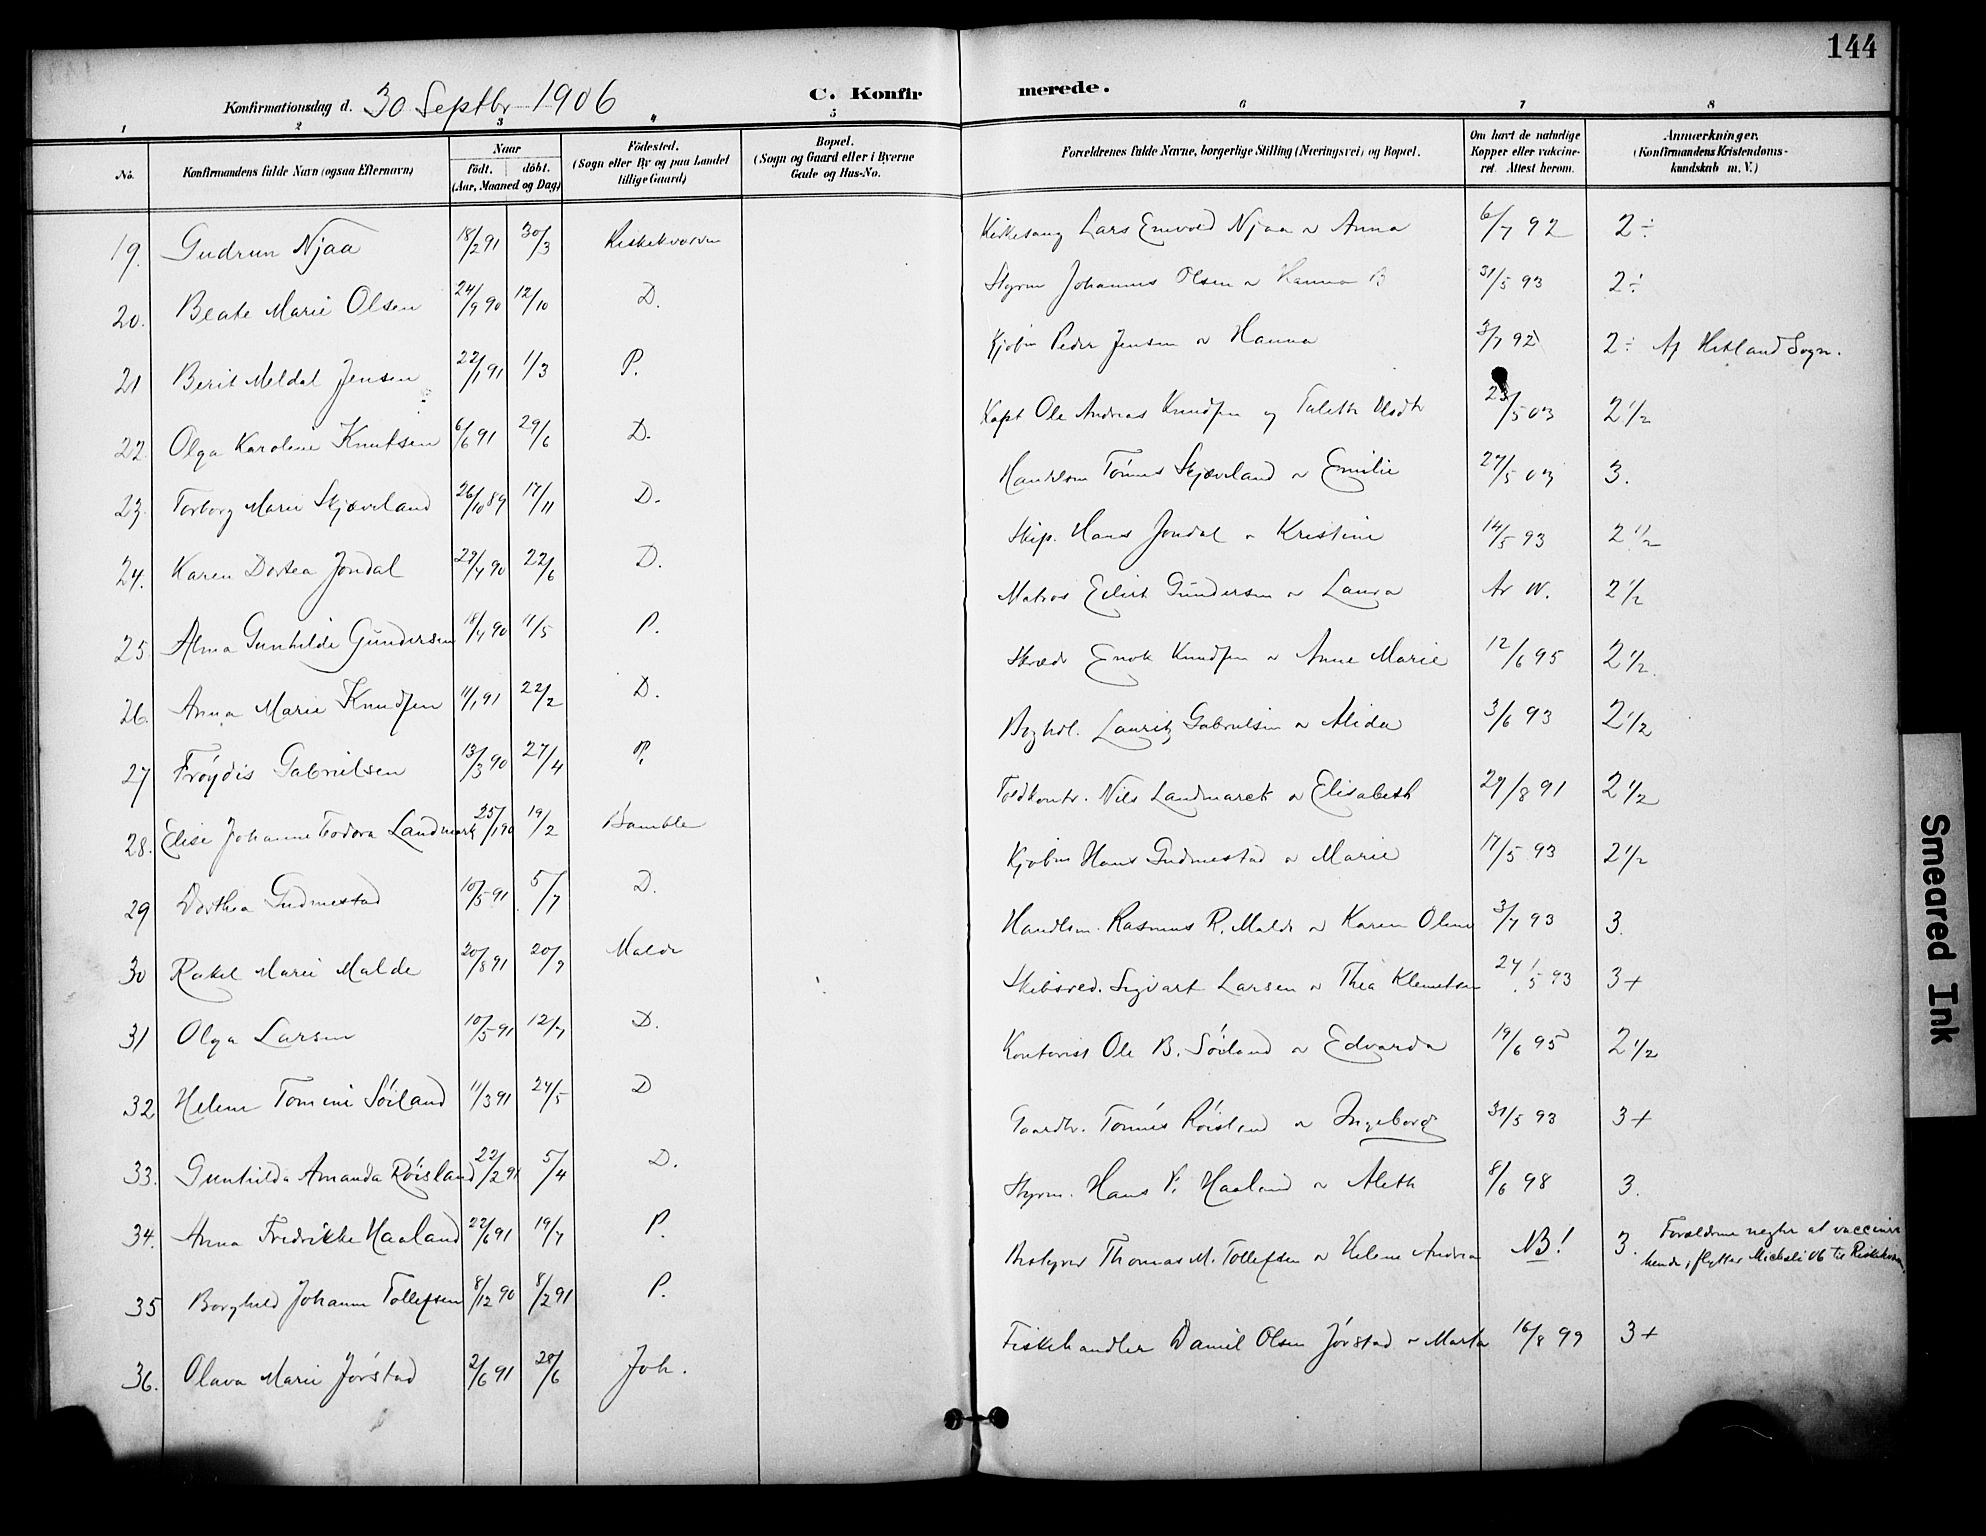 144
Konfirmationsdag d. 30 Septbr 1906 C. Konfirmerede.
1 2 3 4 5 6 7 8
No. Konfirmandens fulde Navn (ogsaa Efternavn) Naar födt. döbt. (Aar, Maaned og Dag) Födested. (Sogn eller By og paa Landet tillige Gaard) Bopæl. (Sogn og Gaard eller i Byerne Gade og Hus-No. Forældrenes fulde Navne, borgerlige Stilling (Næringsvei) og Bopæl. Om havt de naturlige Kopper eller vakcineret. Attest herom. Anmærkninger. (Konfirmandens Kristendomskundskab m. V.)
19. Gudrun Njaa 18/2 91 30/3 Kirkesang Lars Enevold Njaa & Anna 6/7 92 2÷
20. Beate Marie Olsen 24/9 90 12/10 D. Styrm Johannes Olsen & Hanna B 31/5 93 2÷
21 Berit Meldal Jensen 22/1 91 1/3 P. Kjøbm Peder Jensen & Hanna 3/7 92 2÷ Af Hetland Sogn.
22. Olga Karoline Knutsen 6/6 91 29/6 D. Kapt Ole Andreas Knudsen og Talette 23/5 03 2 1/2
23. Torborg Marie Skjæveland 26/10 89 17/11 D. Handelsm Tönnes Skjæveland & Emilie 27/5 03 3.
24. Karen Dortea Jondal 22/6 D. Skip. Hans Jondal & Kristine 14/5 93 2 1/2
25. Alma Gunhilde Gundersen 18/4 90 /5 P. Matros Eilert Gundersen & Laura Ar W. 2 1/2
26. Anna Marie Knudsen 11/1 91 22/2 D. Skræd Enok Knudsen & Anne Marie 12/6 95 2 1/2
27 Fröydis Gabrielsen 13/3 90 27/4 P. Boghdl. Lauritz Gabrielsen & Alida 3/6 93 2 1/2
28. Elise Johanne Todora Landmark 25/1 90 19/2 Bamble Toldkontr. Nils Landmarck & Elisabeth 29/8 91 2 1/2
29 Dorthea Gudmestad 10/5 91 5/7 D. Kjøbm Hans Gudmestad & Marie 17/5 93 2 1/2
30 Rakel Marie Malde 20/8 91 20/9 Malde Handlsm. Rasmus R. Malde & Karen Oline 3/7 93 3.
31 Olga Larsen 10/5 91 12/7 D. Skibsred. Sigvart Larsen & Thea Klemetsen 24/5 93 3+
32 Helene Tomine Söiland 11/3 91 24/5 D Kontorist Ole B. Söiland & Edvarda 19/6 95 2 1/2
33. Gunhilda Amanda Röisland 22/2 91 5/4 D. Gaardbr. Tönnes Röisland & Ingeborg 31/5 93 3+
34. Anna Fredrikke Haaland 22/6 91 19/7 P. Styrm. Hans F. Haaland & Aleth 8/6 98 3.
35 Borghild Johanne Tollefsen 8/12 90 8/2 91 P. Bestyrer Thomas M. Tollefsen & Helene Andrea NB! 3. Forældrene negter at vaccinere hende, flytter Micheli 06 til
36. Olava Marie Jörstad 2/6 91 28/6 Joh. Fiskehandler Daniel Olsen Jörstad & Marta 16/8 99 3+
Smeared Ink